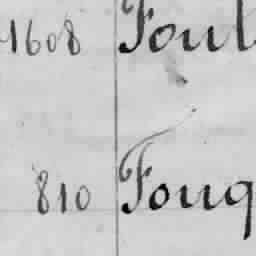 1608 Foul
810 Fouq